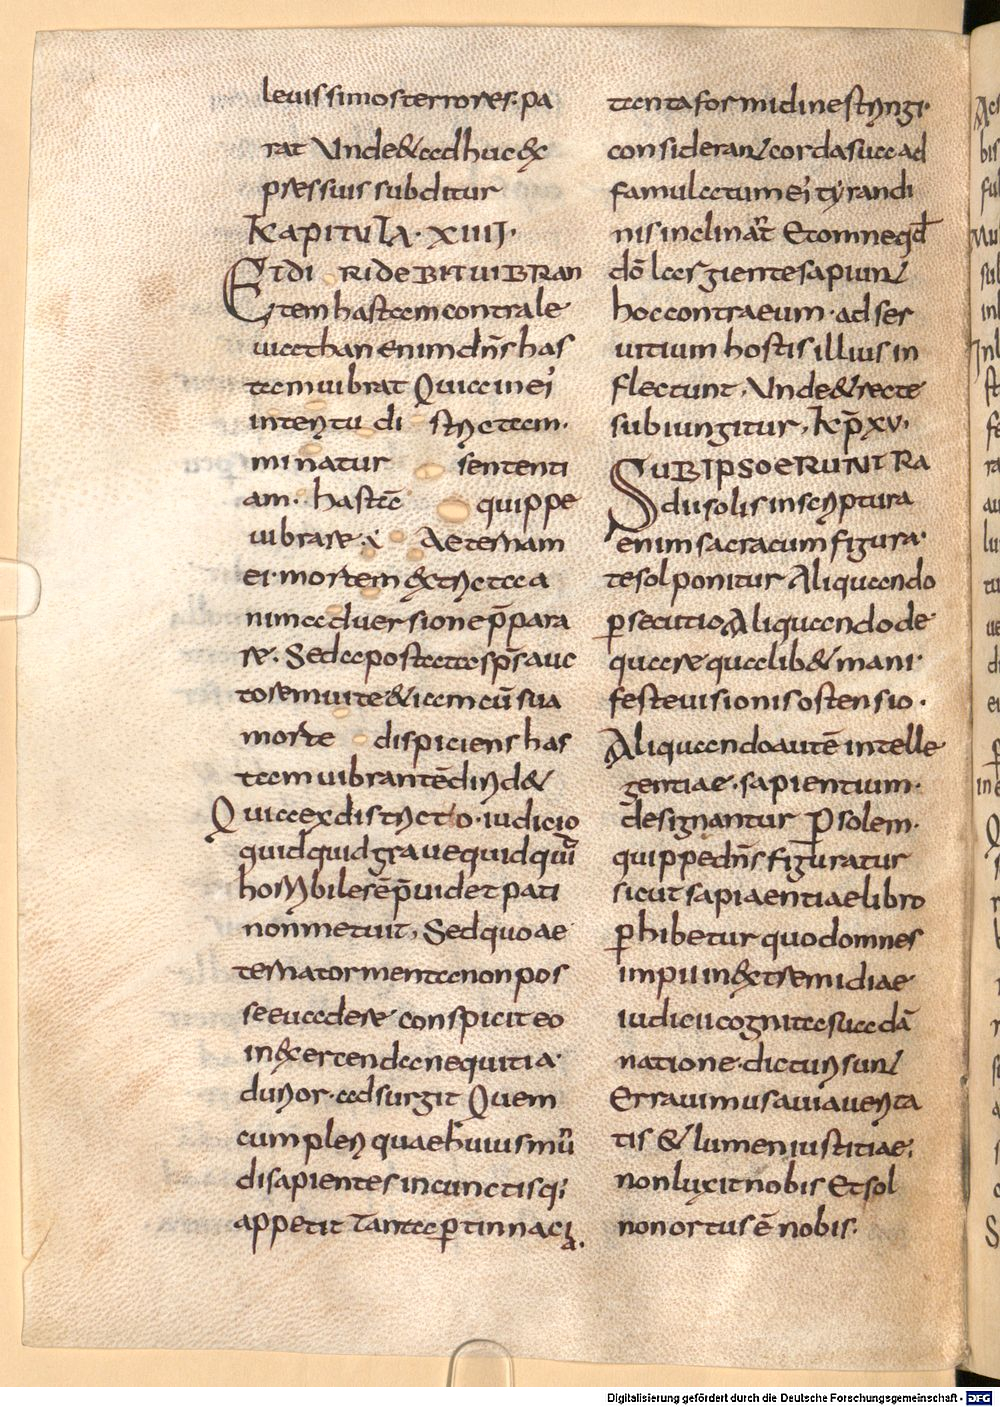 leuissimos terrores. pa
rat Unde & ad huc &
pressius subditur
KapituLA. XIIII.
Et diridebit vibran
tem hastam contra le
uiathan enim dn̄s has
tam uibrat Quia in ei
interitu districtam.
minatur sententi
am. hastā quippe
uibrare ÷ Aeternam
ei mortem extricta a
nimaduersione p̄para
re. Sed apostata sp̄s auc
torem uitae & iam cū sua
morte dispiciens has
tam uibrantē dirid&
Quia ex districto. iudicio
quidquid graue quid quā
horribile sē p̄uidet pati
non metuit, Sed quo ae
terna tormenta non pos
se euadere conspicit eo
in exercenda nequitia.
durior. adsurgit Quem
cum pleriquae huius mū
di sapientes in cunctis qi
appetit Tanta ꝑtinnaci
a.
tanta formidine stringi.
considerant corda sua ad
famulatum ei tyrandi
nis inclinar̄t Et omne qd̄
dō largiente sapiunt
hoc contra eum. ad ser
uitium hostis illius in
flectunt, Unde & recte
subiungitur, Kp̄ xv.
Sub ipso erunt ra
dii solis in scriptura
enim sacra cum figura.
te sol ponitur Aliquando
ꝑsecutio Aliquando de
quare quaelib& mani.
feste uisionis ostensio.
Aliquando autē intelle
gentiae. sapientium.
designantur P solem.
quippe dn̄s figuratur
sicut sapiaentiae libro
ꝑhibetur quod omnes
impii in extremi diae
iudicii cognita sua dā
natione. dicturi sunt
Errauimus a uia uerita
tis & lumen iustitiae,
non luxit nobis Et sol
non ortus ē nobis.
Digitalisierung gefördert durch die Deutsche Forschungsgemeinschaft - DFG